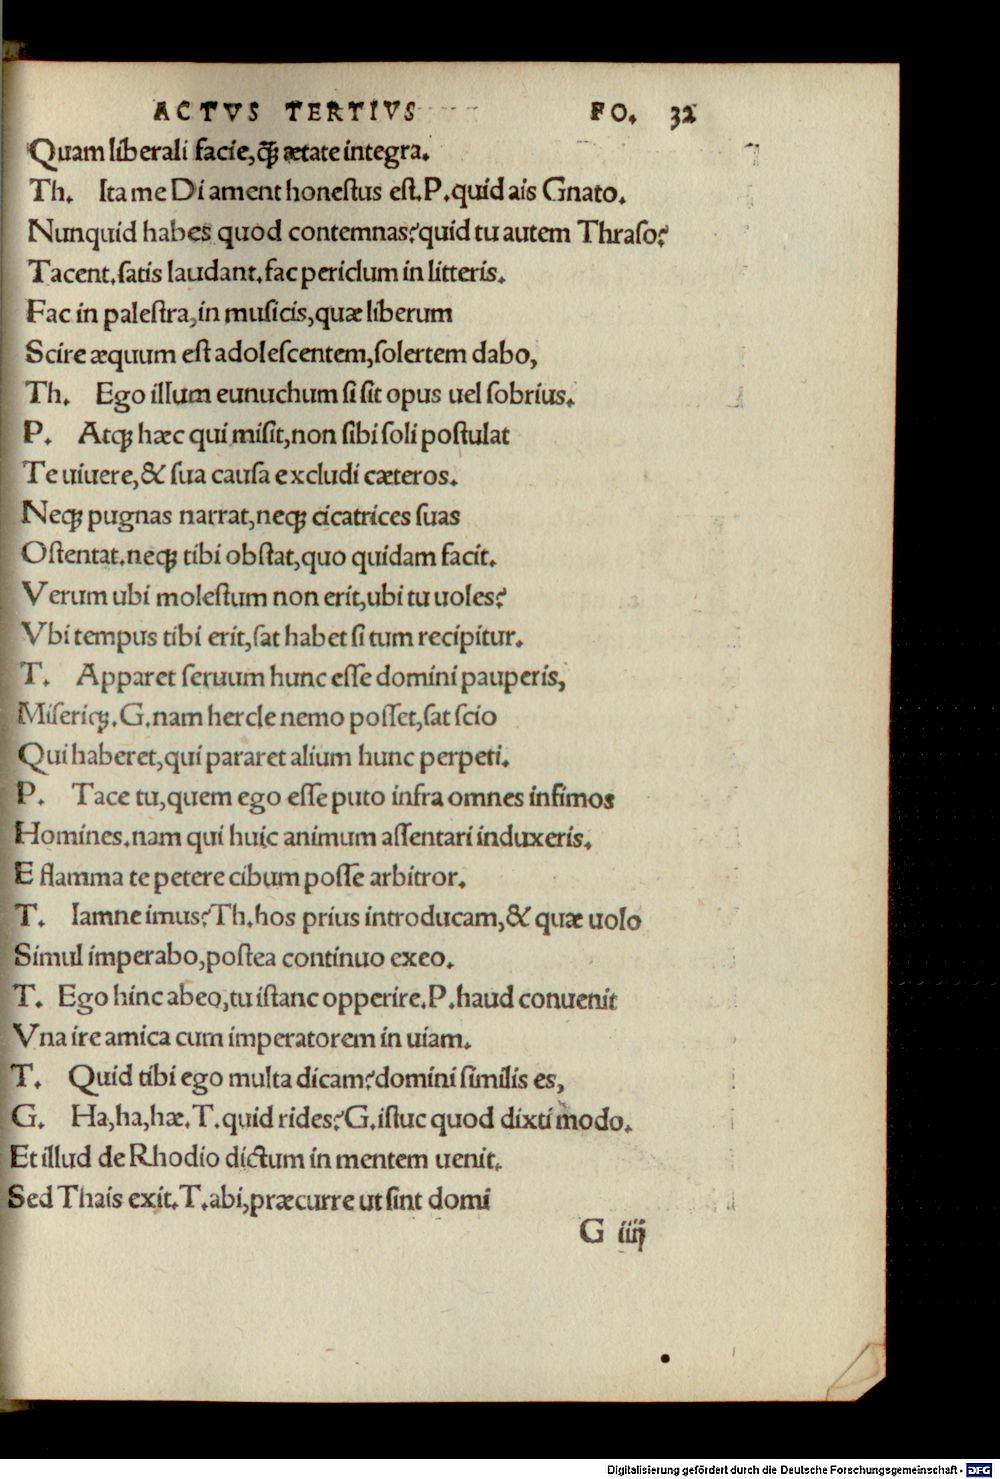 ACTVS TERTIVS FO. 32
Quam liberali facie, q̃ꝫ ætate integra.
Th. Ita me Di ament honeſtus eſt. P. quid ais Gnato.
Nunquid habes quod contemnas? quid tu autem Thraſo?
Tacent. ſatis laudant. fac periclum in litteris.
Fac in paleſtra, in muſicis, quæ liberum
Scire æquum eſt adoleſcentem, ſolertem dabo,
Th. Ego illum eunuchum ſi ſit opus uel ſobrius.
P. Atqꝫ hæc qui miſit, non ſibi ſoli poſtulat
Te uiuere, & ſua cauſa excludi cæteros.
Neqꝫ pugnas narrat, neqꝫ cicatrices ſuas
Oſtentat. neqꝫ tibi obſtat, quo quidam facit.
Verum ubi moleſtum non erit, ubi tu uoles?
Vbi tempus tibi erit, ſat habet ſi tum recipitur.
T. Apparet ſeruum hunc eſſe domini pauperis,
Miſeriqꝫ. G. nam hercle nemo poſſet, ſat ſcio
Qui haberet, qui pararet alium hunc perpeti.
P. Tace tu, quem ego eſſe puto infra omnes infimos
Homines. nam qui huic animum aſſentari induxeris.
E flamma te petere cibum poſſe arbitror.
T. Iamne imus? Th. hos prius introducam, & quæ uolo
Simul imperabo, poſtea continuo exeo.
T. Ego hinc abeo, tu iſtanc opperire. P. haud conuenit
Vna ire amica cum imperatorem in uiam.
T. Quid tibi ego multa dicam? domini ſimilis es,
G. Ha, ha, hæ. T. quid rides? G. iſtuc quod dixti modo.
Et illud de Rhodio dictum in mentem uenit.
Sed Thais exit. T. abi, præcurre ut ſint domi
G iiij
Digitalisierung gefördert durch die Deutsche Forschungsgemeinschaft - DFG